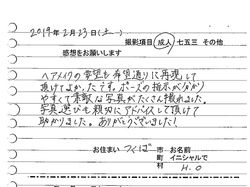 2019年2月23日(土)
撮影項目 成人 七五三 その他
感想をお願いします
ヘアメイクの要望も希望通りに再現して
頂けてよかったです。ポーズの指示が分かり
やすくて素敵な写真がたくさん撮れました。
写真選びも親切にアドバイスして頂けて
助かりました。ありがとうございました!
お住まい つくば 市 町 村
お名前 イニシャルで
H.O